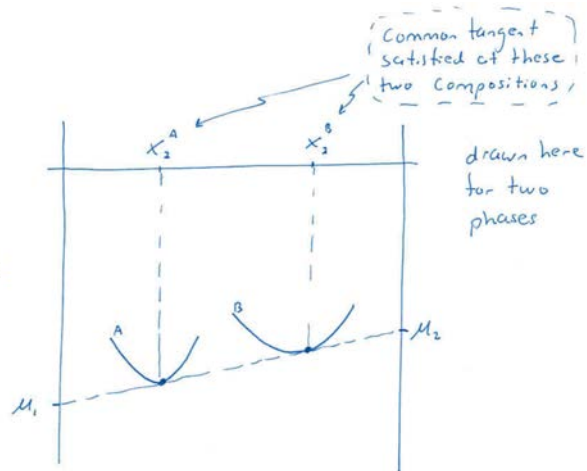 Common tangent
satisfied at these
two Compositions
X₂ᴬ
X₂ᴮ
drawn here
for two
phases
A
B
μ₂
μ₁